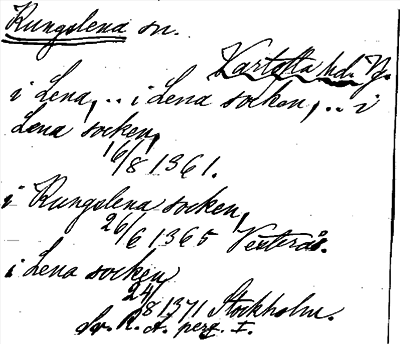 Kungslena sn.
Vartofta hd. Vg.
i Lena, .. i Lena socken, .. i
Lena socken,
16/8 1361.
i Kungslena socken,
26/6 1365 Vesterås.
i Lena socken
24/8 1371 Stockholm.
Sv. R. A. perg. I.